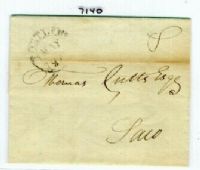 7140
8
MAY
Thomas Cutts Esqr
Saco